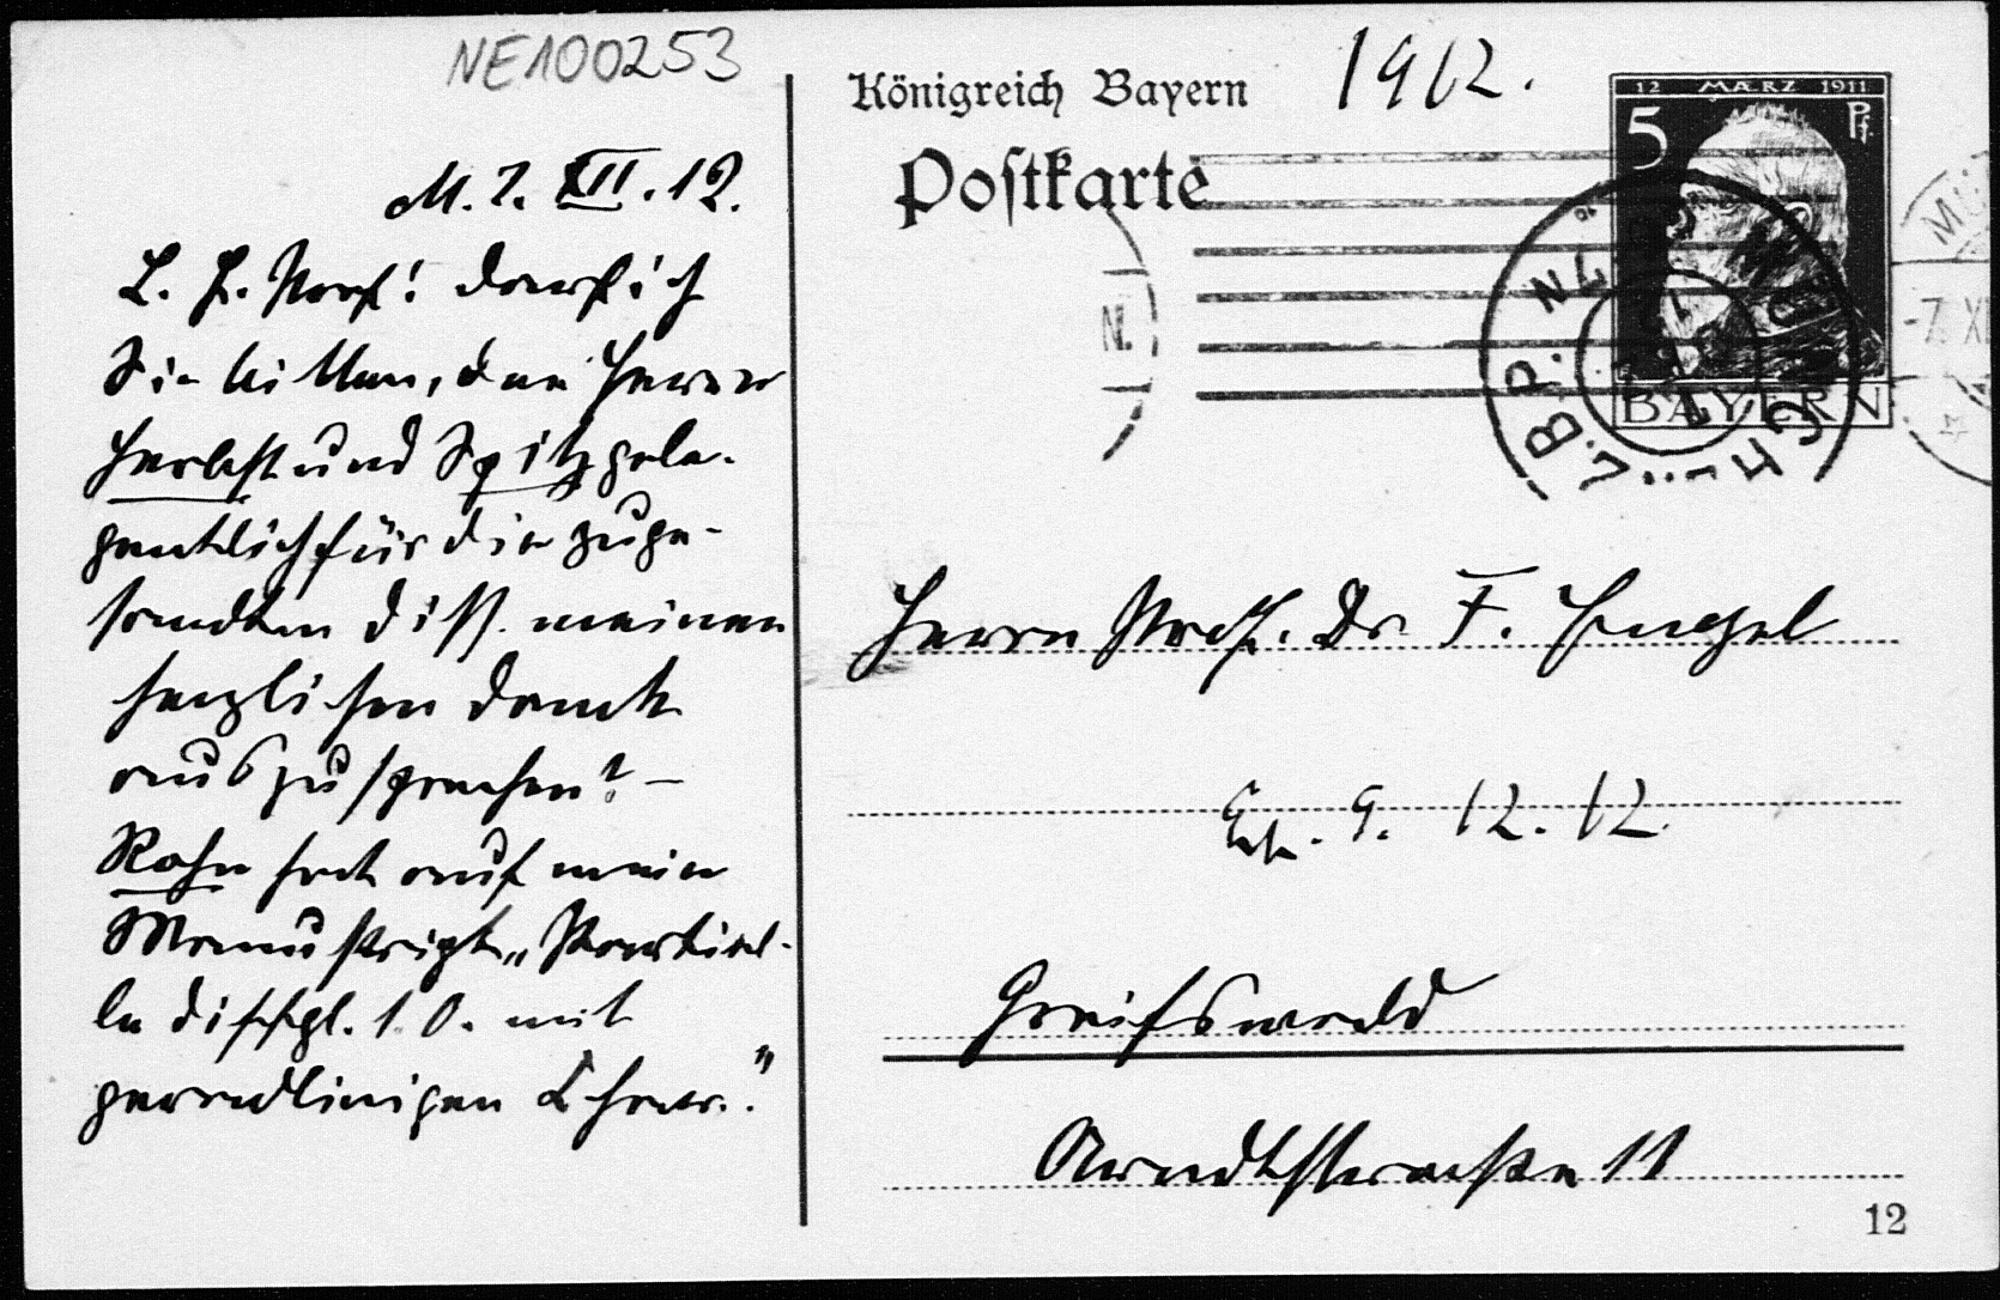 NE100253
M. 7. XII. 12.
L. H. Prof! Darf ich
Sie bitten, den Herren
Herbst und Spitz gele-
gentlich für die zuge-
sandten Diss. meinen
herzlichen Dank
auszusprechen? –
Rohn hat auf mein
Manuskript „Partiel-
le Diffgl. 1. O. mit
geradlinigen Char."
Königreich Bayern
1912.
Postkarte
12 MÆRZ 1911
5 Pf.
BAYERN
MÜNCHEN
B.P.
-7. XI
Herrn Prof. Dr. F. Engel
9. 12. 12.
Greifswald
Arndtstrasse 11
12